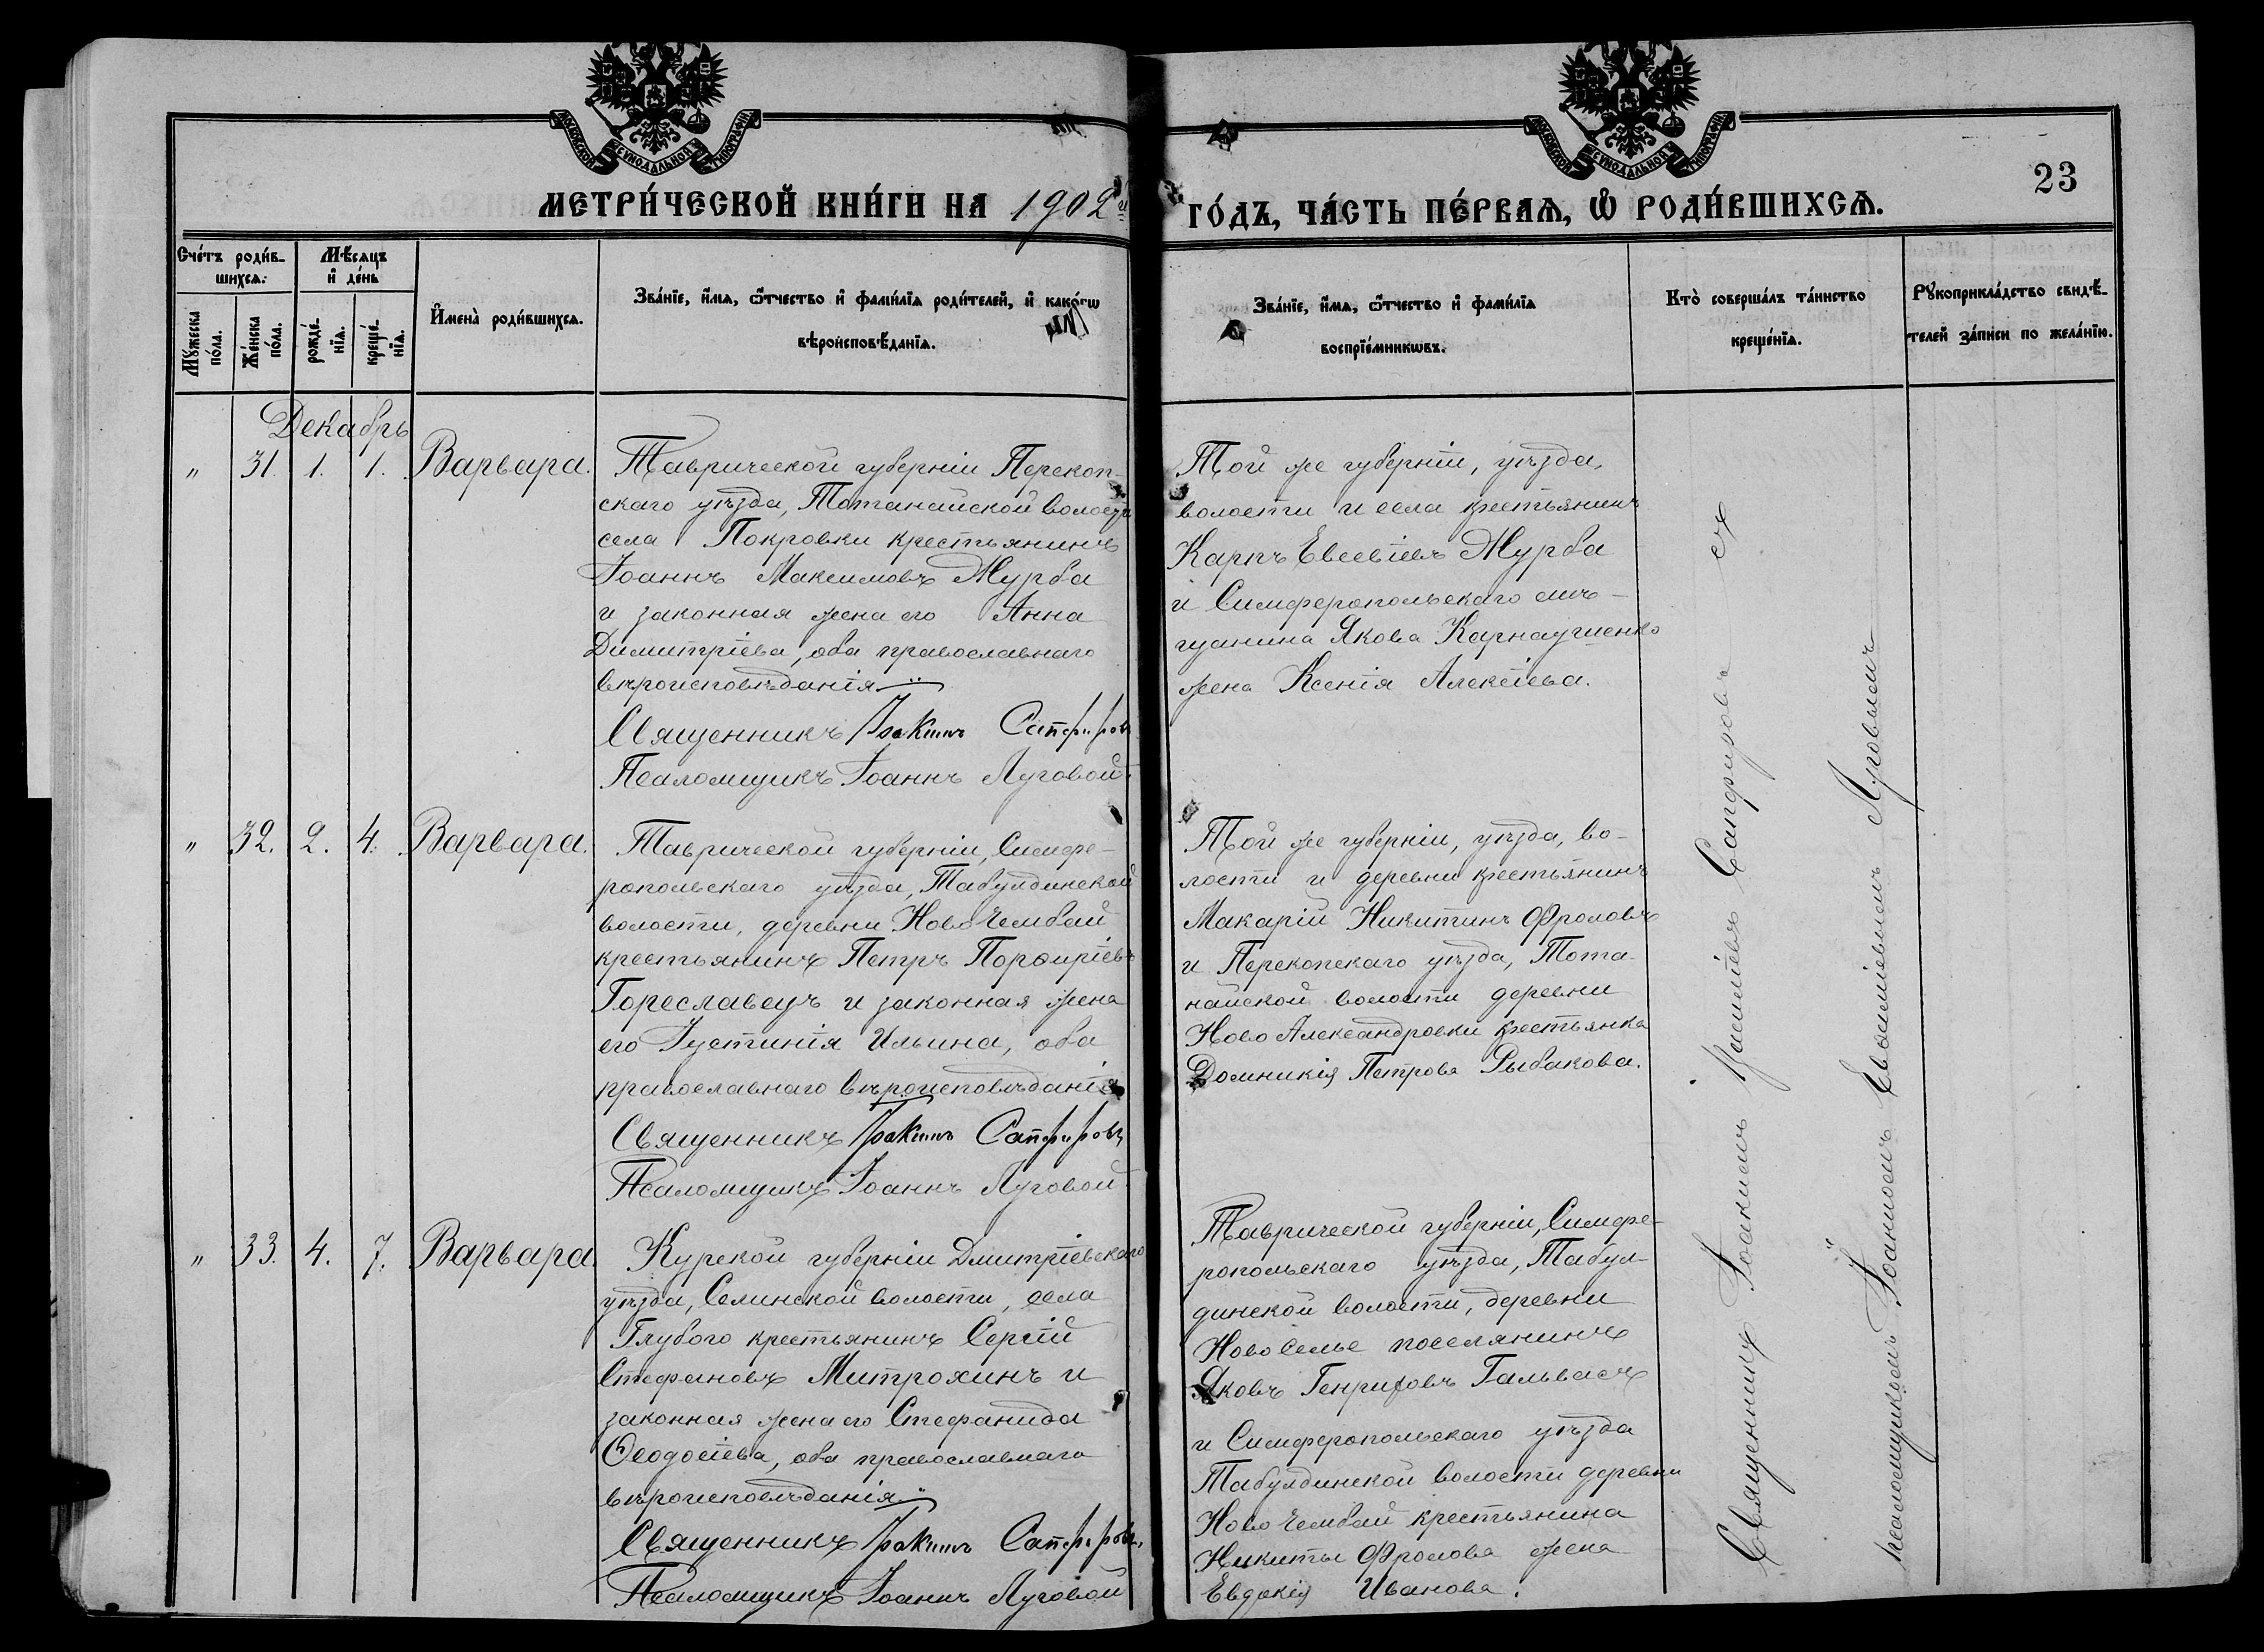 МОСКОВСКОЙ СѴНОДАЛЬНОЙ ТИПОГРАФІИ
МОСКОВСКОЙ СѴНОДАЛЬНОЙ ТИПОГРАФІИ
23
МЕТРИ́ЧЕСКОЙ КНИ́ГИ НА 1902й
ГО́ДЪ, ЧА́СТЬ ПЕ́РВАѦ, Ѡ҆ РОДИ́ВШИХСѦ.
Сче́тъ роди́в-
шихсѧ.
Мꙋ́жеска по́ла.
Же́нска по́ла.
Мѣ́сяцъ
и҆ де́нь
рожде́-
нїѧ.
креще́-
нїѧ.
И҆мена̀ роди́вшихсѧ.
Зва́нїе, и҆́мѧ, ѻ҆́тчество и҆ фами́лїѧ роди́телей, и҆ како́гѡ
вѣроисповѣ́данїѧ.
Зва́нїе, и҆́мѧ, ѻ҆́тчество и҆ фами́лїѧ
воспрїе́мникѡвъ.
Кто̀ соверша́лъ та́инство
креще́нїѧ.
Рꙋкоприкла́дство свидѣ́-
телей за́писи по жела́нїю.
Декабрь
" 31. 1. 1. Варвара.
Таврической губерніи Перекоп-
скаго уѣзда, Тотанайской волости
села Покровки крестьянинъ
Іоаннъ Максимовъ Журба
и законная жена его Анна
Димитріева, оба православнаго
вѣроисповѣданія
Священникъ Іоакимъ Сапфировъ
Псаломщикъ Іоаннъ Луговой.
Той же губерніи, уѣзда,
волости и села крестьянинъ
Карпъ Евсевіевъ Журба
и Симферопольскаго мѣ-
щанина Якова Карнаушенко
жена Ксенія Алексіева.
" 32. 2. 4. Варвара.
Таврической губерніи, Симфе-
ропольскаго уѣзда, Табулдинской
волости, деревни Ново Чембай
крестьянинъ Петръ Порфиріевъ
Гореславецъ и законная жена
его Іустинія Ильина, оба
православнаго вѣроисповѣданія
Священникъ Іоакимъ Сапфировъ
Псаломщикъ Іоаннъ Луговой
Той же губерніи, уѣзда, во-
лости и деревни крестьянинъ
Макарій Никитинъ Фроловъ
и Перекопскаго уѣзда, Тота-
найской волости деревни
Ново Александровки крестьянка
Домникія Петрова Рыбакова.
" 33. 4. 7. Варвара.
Курской губерніи Дмитріевскаго
уѣзда, Селинской волости, села
Глубого крестьянинъ Сергій
Стефановъ Митрохинъ и
законная жена его Стефанида
Ѳеодосіева, оба православнаго
вѣроисповѣданія
Священникъ Іоакимъ Сапфировъ.
Псаломщикъ Іоаннъ Луговой
Таврической губерніи, Симфе-
ропольскаго уѣзда, Табул-
динской волости, деревни
Ново Селье поселянинъ
Яковъ Генриховъ Гальвасъ
и Симферопольскаго уѣзда
Табулдинской волости деревни
Ново Чембай крестьянина
Никиты Фролова жена
Евдокія Иванова.
Священникъ Іоакимъ Сапфировъ съ
псаломщикомъ Іоанномъ Луговымъ